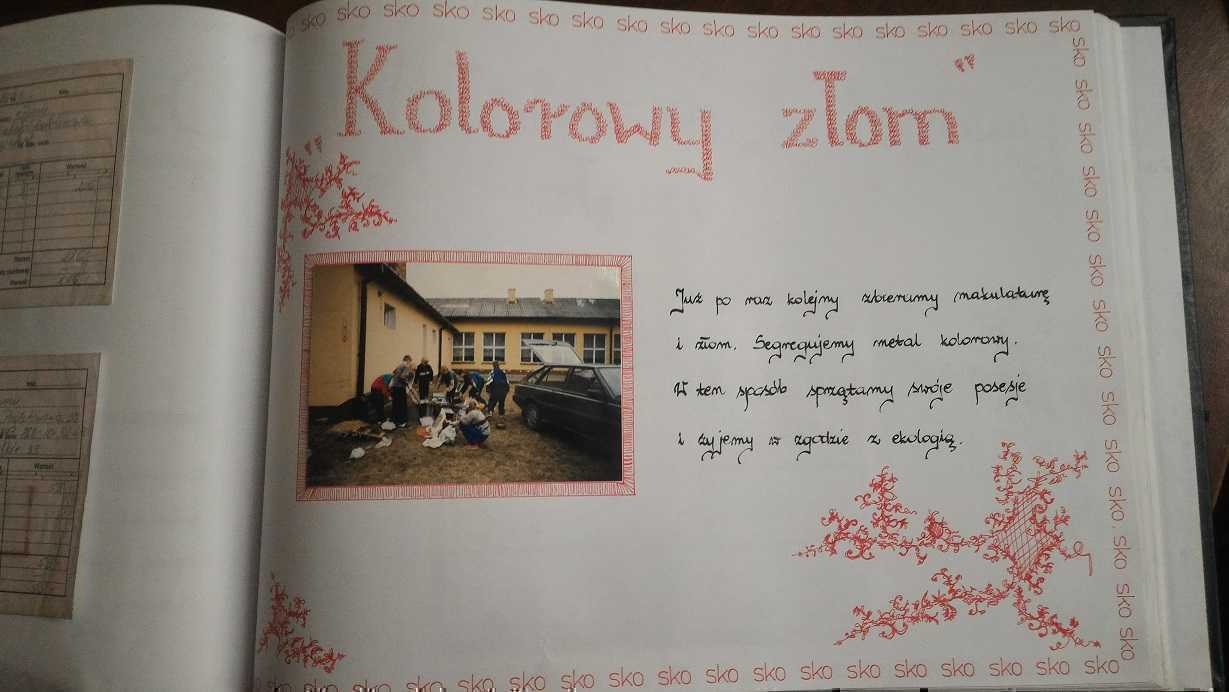 sko sko sko sko sko sko sko sko sko sko sko sko sko sko sko sko sko sko
„Kolorowy złom"
Już po raz kolejny zbieramy makulaturę
i złom. Segregujemy metal kolorowy.
W ten sposób sprzątamy swoje posesje
i żyjemy w zgodzie z ekologią.
sko sko sko sko sko sko sko sko sko sko sko sko sko sko
sko sko sko sko sko sko sko sko sko sko sko sko sko sko sko sko sko sko
Wartość
Wartość